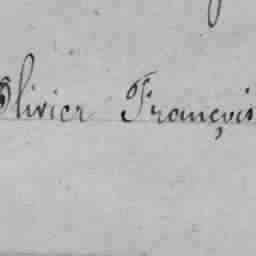 Olivier François